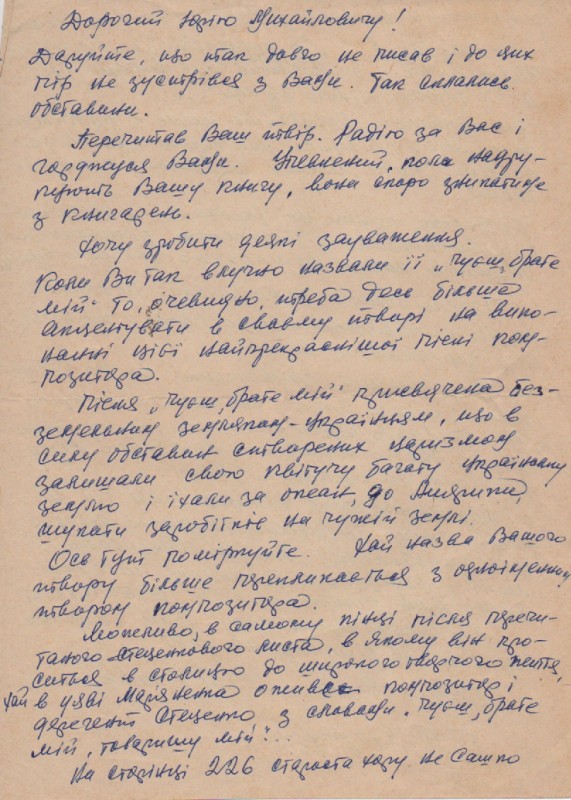 Дорогий Юрію Михайловичу!
Даруйте, що так довго не писав і до цих
пір не зустрівся з Вами. Так склались
обставини.
Перечитав Ваш твір. Радію за Вас і
горджуся Вами. Упевнений, коли надру-
кують Вашу книгу, вона скоро зникатиме
з книгарень.
Хочу зробити деякі зауваження.
Коли Ви так влучно назвали її „Чуєш, брате
мій" то, очевидно, треба десь більше
акцентувати в своєму творі на вико-
нанні цієї найпрекраснішої пісні ком-
позитора.
Пісня „Чуєш, брате мій" присвячена без-
земельним землякам-українцям, що в
силу обставин створених царизмом
залишали свою квітучу багату українську
землю і їхали за океан, до Америки,
шукати заробітків на чужій землі.
Ось тут поміркуйте. Хай назва Вашого
твору більше перекликається з однойменним
твором композитора.
Можливо, в самому кінці після перечи-
таного Стеценкового листа, в якому він про-
ситься в столицю до широкого творчого життя,
хай в уяві Мар'яненка оживе композитор і
диригент Стеценко з словами „Чуєш, брате
мій, товаришу мій"...
На сторінці 226 староста хору не Сашко